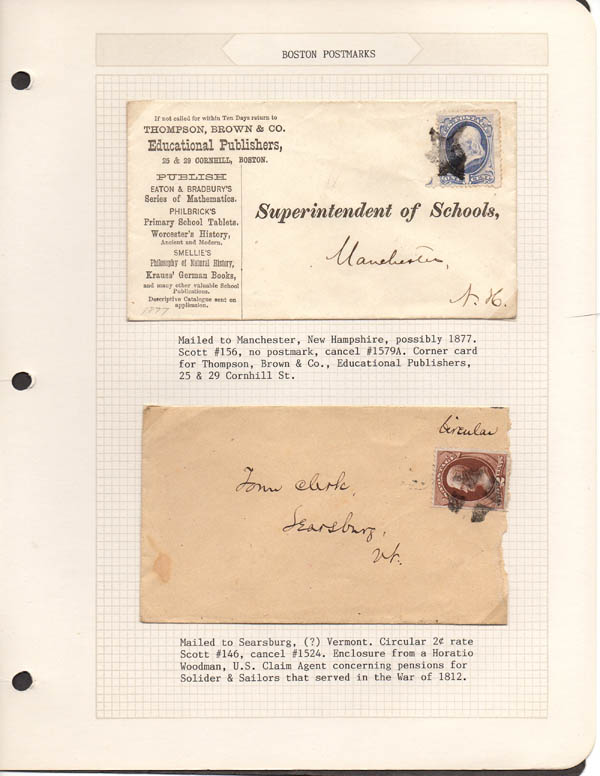 BOSTON POSTMARKS
If not called for within Ten Days return to
THOMPSON, BROWN & CO.
Educational Publishers,
25 & 29 CORNHILL, BOSTON.
PUBLISH
EATON & BRADBURY'S
Series of Mathematics.
PHILBRICK'S
Primary School Tablets.
Worcester's History,
Ancient and Modern.
SMELLIE'S
Philosophy of Natural History,
Krauss' German Books,
and many other valuable School
Publications.
Descriptive Catalogue sent on
application.
1877
Superintendent of Schools,
Manchester,
N. H.
Mailed to Manchester, New Hampshire, possibly 1877.
Scott #156, no postmark, cancel #1579A. Corner card
for Thompson, Brown & Co., Educational Publishers,
25 & 29 Cornhill St.
Circular
Town Clerk,
Searsburg,
Vt.
Mailed to Searsburg, (?) Vermont. Circular 2¢ rate
Scott #146, cancel #1524. Enclosure from a Horatio
Woodman, U.S. Claim Agent concerning pensions for
Solider & Sailors that served in the War of 1812.